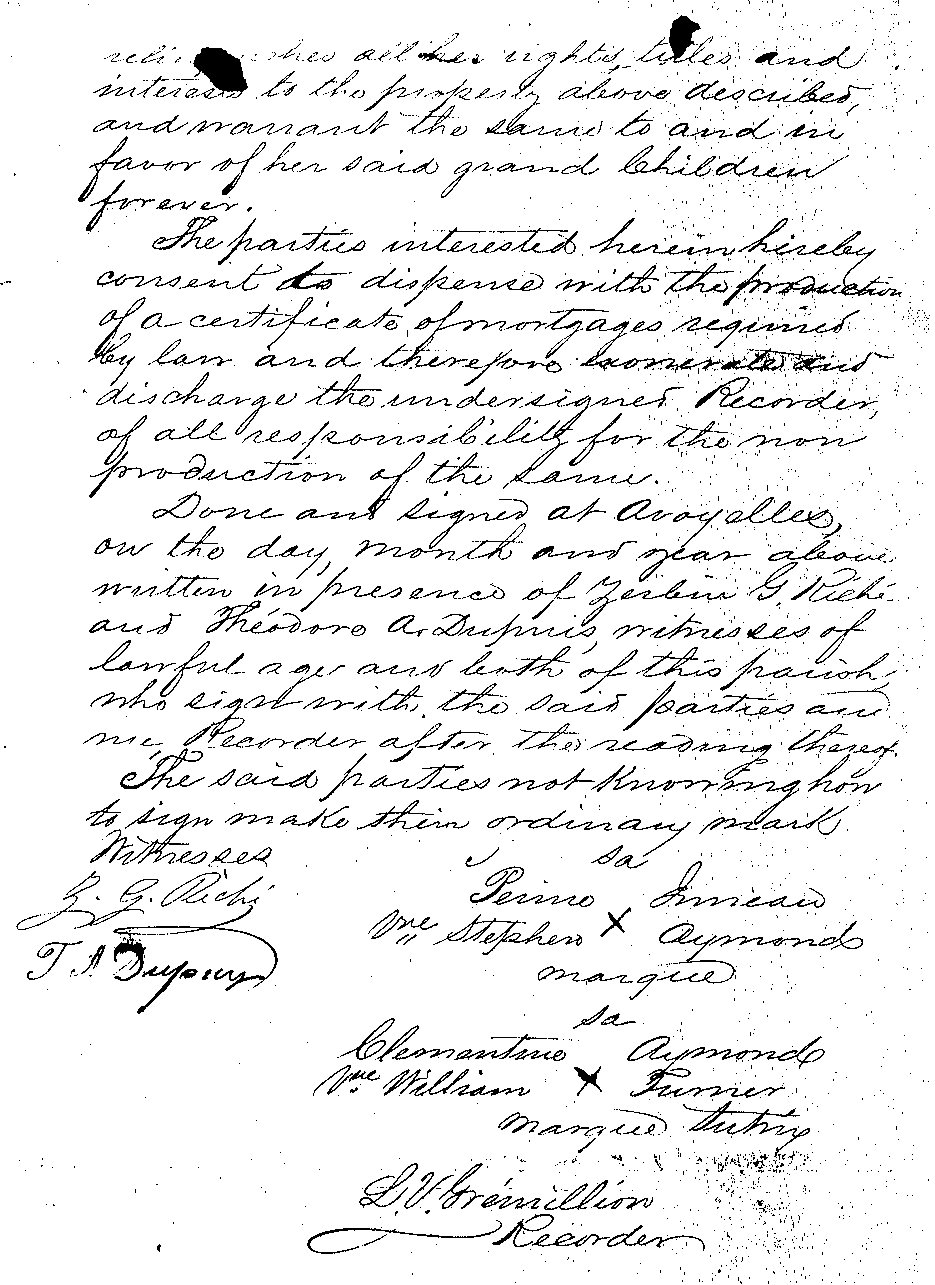 all her rights, titles and
interests to the property above described,
and warrant the same to and in
favor of her said grand Children
forever.
The parties interested herein hereby
consent to dispense with the production
of a certificate of mortgages required
by law and therefore exonerate and
discharge the undersigned Recorder,
of all responsibility for the non
production of the same.
Done and signed at Avoyelles,
on the day, month and year above
written in presence of Zerbin G. Riché
and Théodore A. Dupuis, witnesses of
lawful age and both of this parish,
who sign with the said parties and
me, Recorder after the reading thereof.
The said parties not Knowing how
to sign make their ordinary mark
Witnesses
Z. G. Riché
T A Dupuis
sa
Vve Stephen X Aymond
marque
sa
Clementine Aymond
Vve William X Turner
marque tutrix
L. V. Grémillion
Recorder